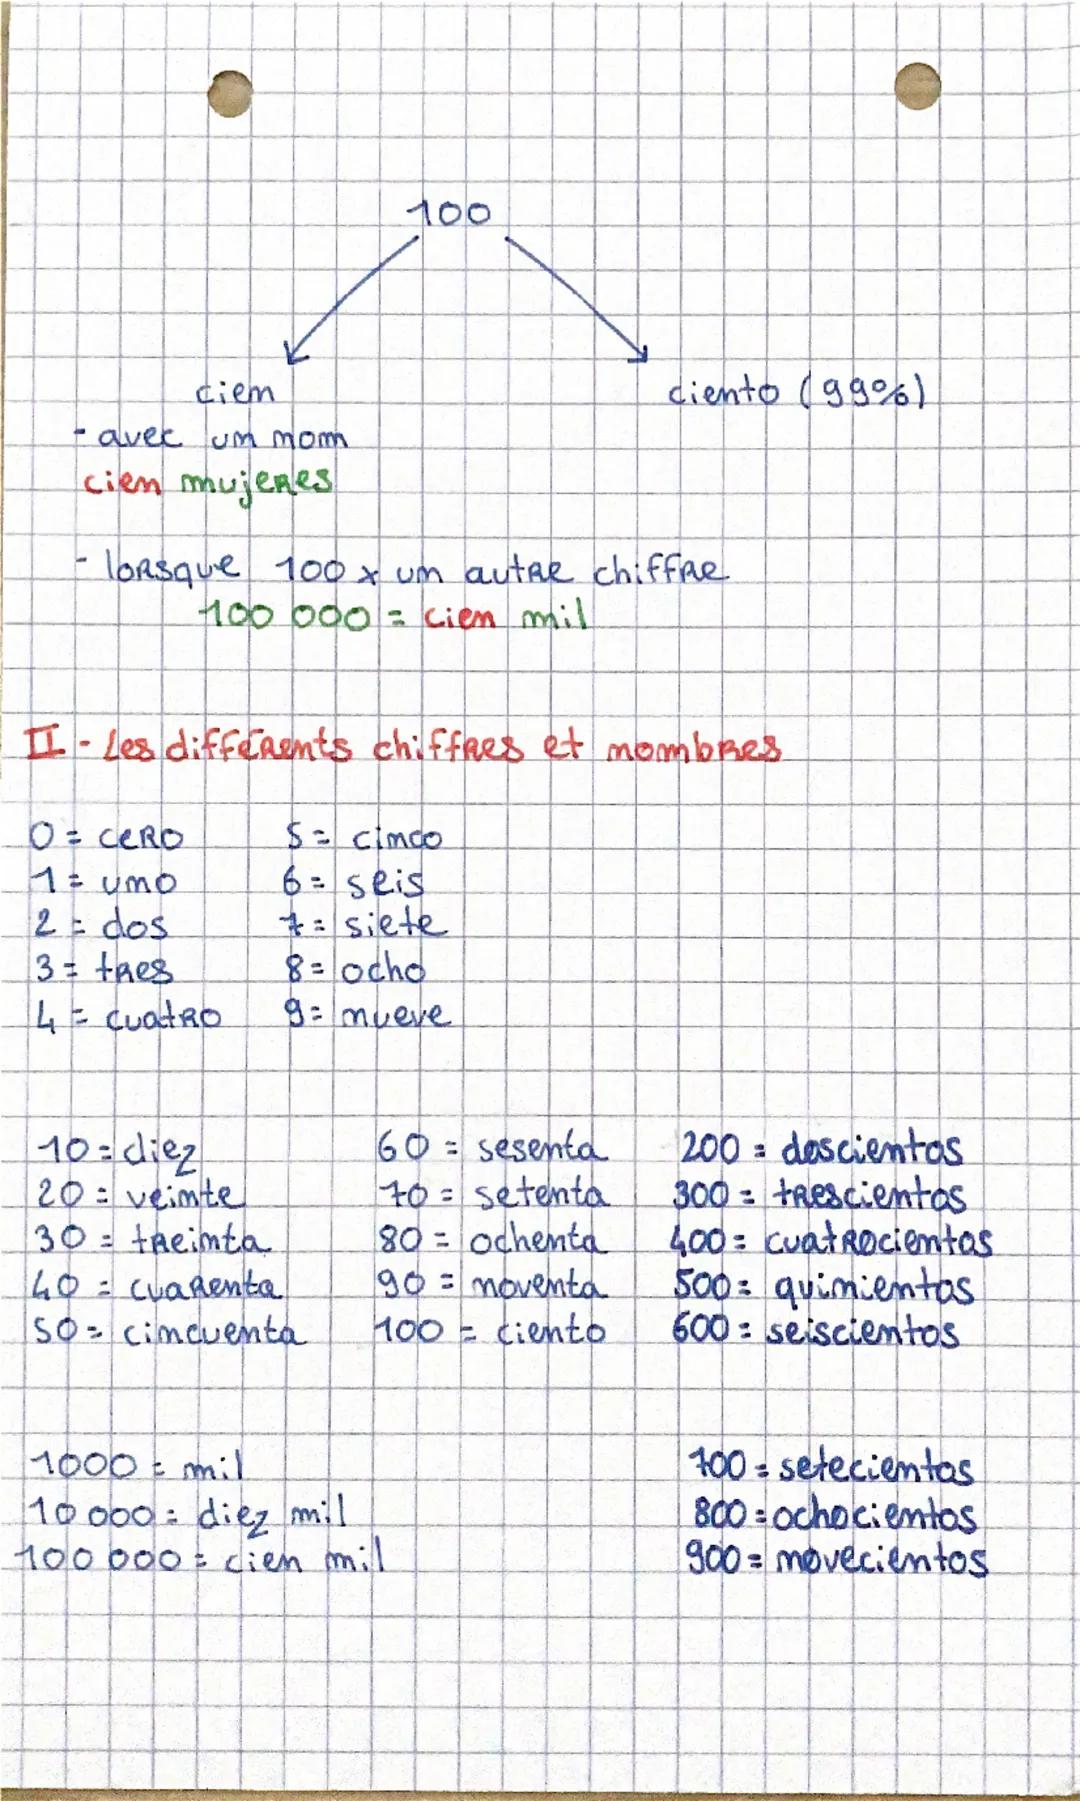 100
cien
ciento (99%)
- avec un nom
cien mujeres
- lorsque 100 x un autre chiffre
100 000 = cien mil
II - Les différents chiffres et nombres
0 = cero
1 = uno
2 = dos
3 = tres
4 = cuatro
5 = cinco
6 = seis
7 = siete
8 = ocho
9 = nueve
10 = diez
20 = veinte
30 = treinta
40 = cuarenta
50 = cincuenta
60 = sesenta
70 = setenta
80 = ochenta
90 = noventa
100 = ciento
200 = doscientos
300 = trescientos
400 = cuatrocientos
500 = quinientos
600 = seiscientos
700 = setecientos
800 = ochocientos
900 = novecientos
1000 = mil
10 000 = diez mil
100 000 = cien mil